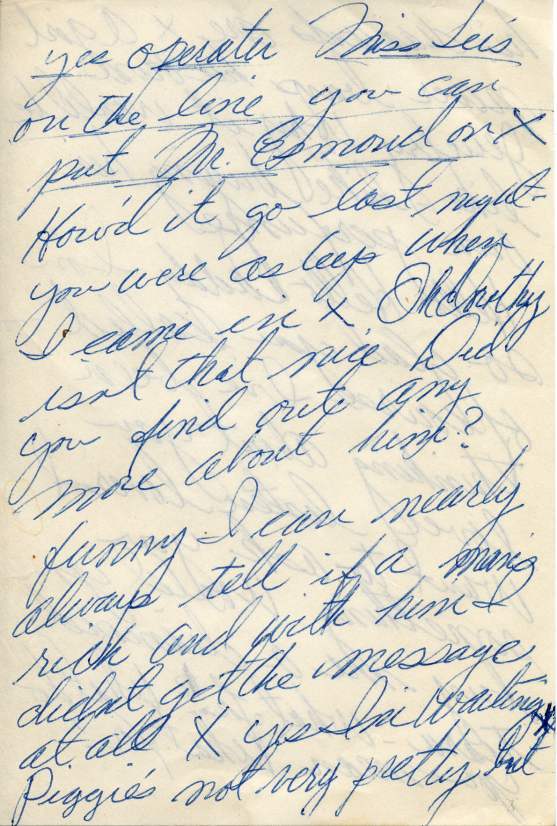 yes operater Miss Lee's
on the line you can
put Mr. Esmond on X
How'd it go last night -
you were asleep when
I came in X Oh Dorothy
isnt that nice Did
you find out any
more about him?
funny - I can nearly
always tell if a mans
rich and with him I
didnt get the message
at all X yes Im waiting X
Piggie's not very pretty but